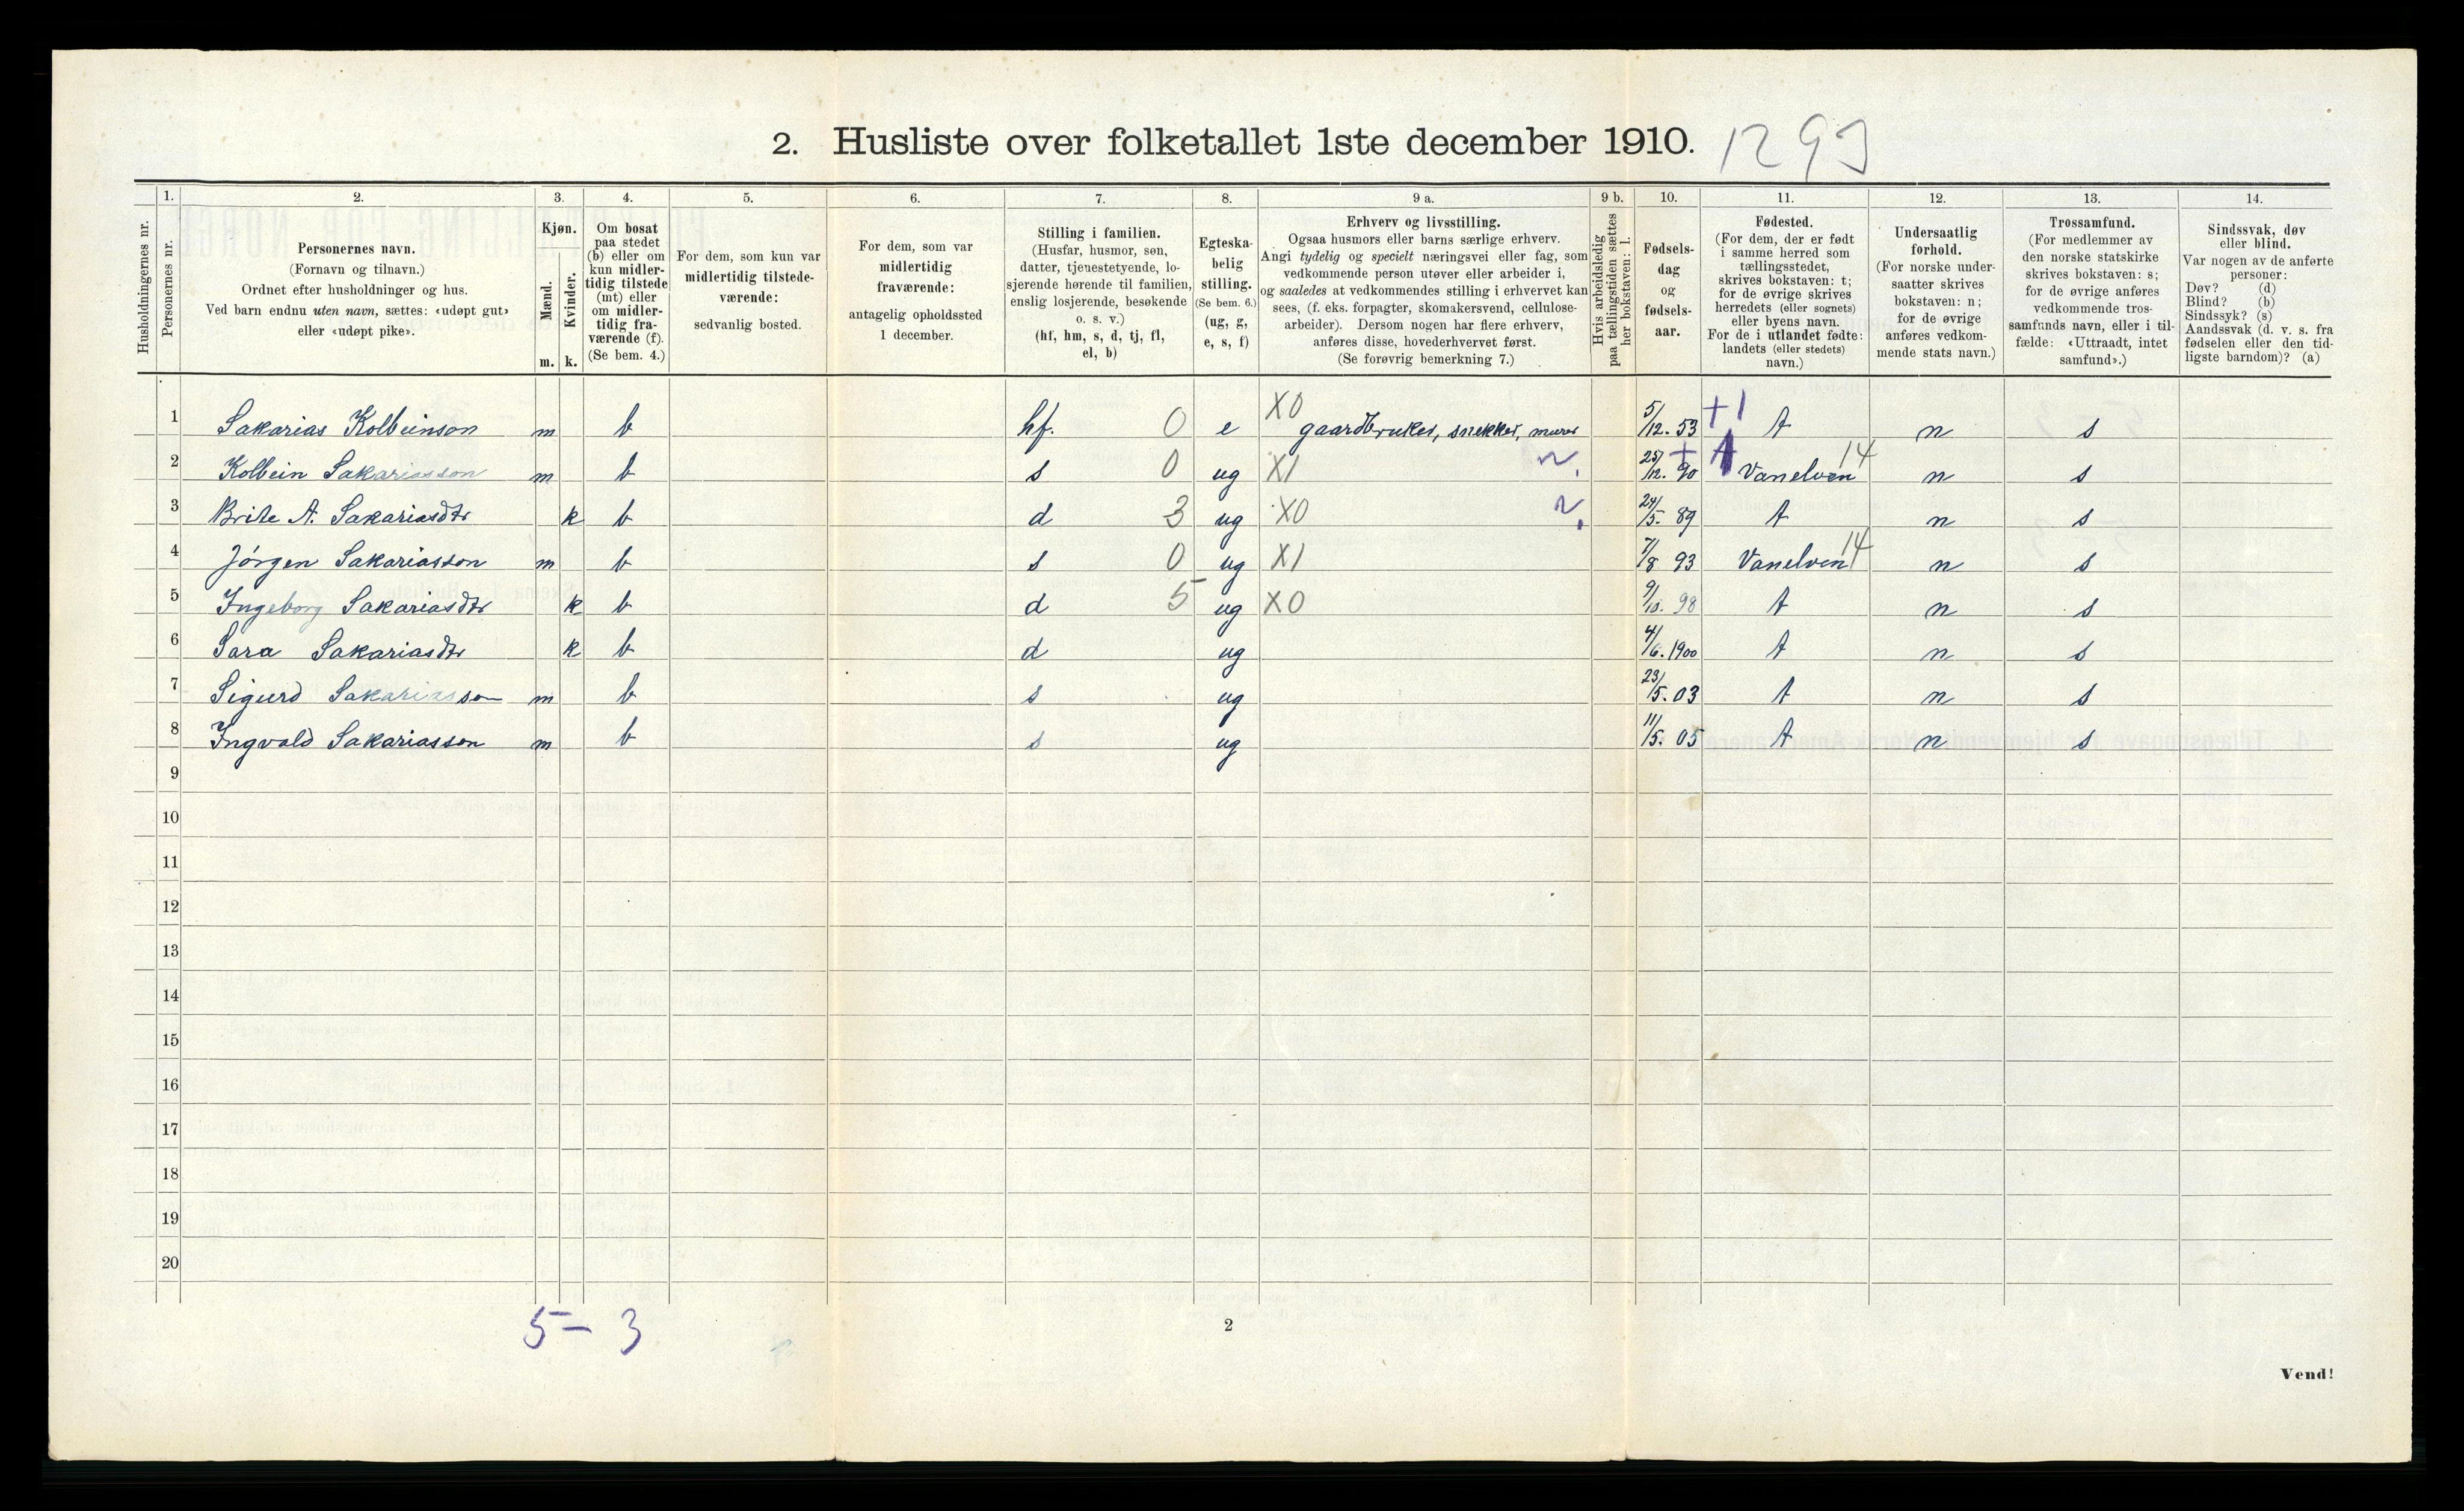 2. Husliste over folketallet 1ste december 1910. 1293
Husholdningernes nr.
1. Personernes nr.
2. Personernes navn.
(Fornavn og tilnavn.)
Ordnet efter husholdninger og hus.
Ved barn endnu uten navn, sættes: «udøpt gut»
eller «udøpt pike».
3. Kjøn.
Mænd. Kvinder.
m. k.
4. Om bosat
paa stedet
(b) eller om
kun midler-
tidig tilstede
(mt) eller
om midler-
tidig fra-
værende (f).
(Se bem. 4.)
5. For dem, som kun var
midlertidig tilstede-
værende:
sedvanlig bosted.
6. For dem, som var
midlertidig
fraværende:
antagelig opholdssted
1 december.
7. Stilling i familien.
(Husfar, husmor, søn,
datter, tjenestetyende, lo-
sjerende hørende til familien,
enslig losjerende, besøkende
o. s. v.)
(hf, hm, s, d, tj, fl,
el, b)
8. Egteska-
belig
stilling.
(Se bem. 6.)
(ug, g,
e, s, f)
9 a. Erhverv og livsstilling.
Ogsaa husmors eller barns særlige erhverv.
Angi tydelig og specielt næringsvei eller fag, som
vedkommende person utøver eller arbeider i,
og saaledes at vedkommendes stilling i erhvervet kan
sees, (f. eks. forpagter, skomakersvend, cellulose-
arbeider). Dersom nogen har flere erhverv,
anføres disse, hovederhvervet først.
(Se forøvrig bemerkning 7.)
9 b. Hvis arbeidsledig
paa tællingstiden sættes
her bokstaven: l.
10. Fødsels-
dag
og
fødsels-
aar.
11. Fødested.
(For dem, der er født
i samme herred som
tællingsstedet,
skrives bokstaven: t;
for de øvrige skrives
herredets (eller sognets)
eller byens navn.
For de i utlandet fødte:
landets (eller stedets)
navn.)
12. Undersaatlig
forhold.
(For norske under-
saatter skrives
bokstaven: n;
for de øvrige
anføres vedkom-
mende stats navn.)
13. Trossamfund.
(For medlemmer av
den norske statskirke
skrives bokstaven: s;
for de øvrige anføres
vedkommende tros-
samfunds navn, eller i til-
fælde: «Uttraadt, intet
samfund».)
14. Sindssvak, døv
eller blind.
Var nogen av de anførte
personer:
Døv? (d)
Blind? (b)
Sindssyk? (s)
Aandssvak (d. v. s. fra
fødselen eller den tid-
ligste barndom)? (a)
1 Sakarias Kolbeinson m b hf. 0 e X0 gaardbruker, snekker, murer 5/12. 53 +1 t n s
2 Kolbein Sakariasson m b s 0 ug X1 25/12. 90 + Vanelven 14 n s
3 Brite A. Sakariasdtr k b d 3 ug X0 24/5. 89 t n s
4 Jørgen Sakariasson m b s 0 ug X1 7/8 93 Vanelven 14 n s
5 Ingeborg Sakariasdtr k b d 5 ug X0 9/10. 98 t n s
6 Sara Sakariasdtr k b d ug 4/6. 1900 t n s
7 Sigurd Sakariasson m b s ug 23/5. 03 t n s
8 Ingvald Sakariasson m b s ug 11/5. 05 t n s
9
10
11
12
13
14
15
16
17
18
19
20
5 — 3
2
Vend!